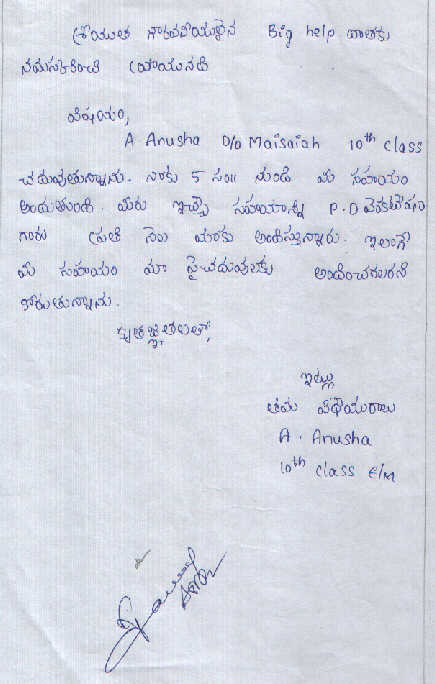 శ్రీయుత గౌరవనీయులైన Big help దాతకు
నమస్కరించి వ్రాయునది
విషయం,
A Anusha D/o Maisaiah 10th class
చదువుతున్నాను. నాకు 5 సం॥ నుండి మీ సహాయం
అందుతుంది. మీరు ఇచ్చే సహాయాన్ని P.D
గారు ప్రతి నెల మాకు అందిస్తున్నారు. ఇలాగే
మీ సహాయం మా పైచదువులకు అందించగలరని
కోరుతున్నాను.
కృతజ్ఞతలతో,
ఇట్లు
తమ విధేయురాలు
A. Anusha
10th class E/M